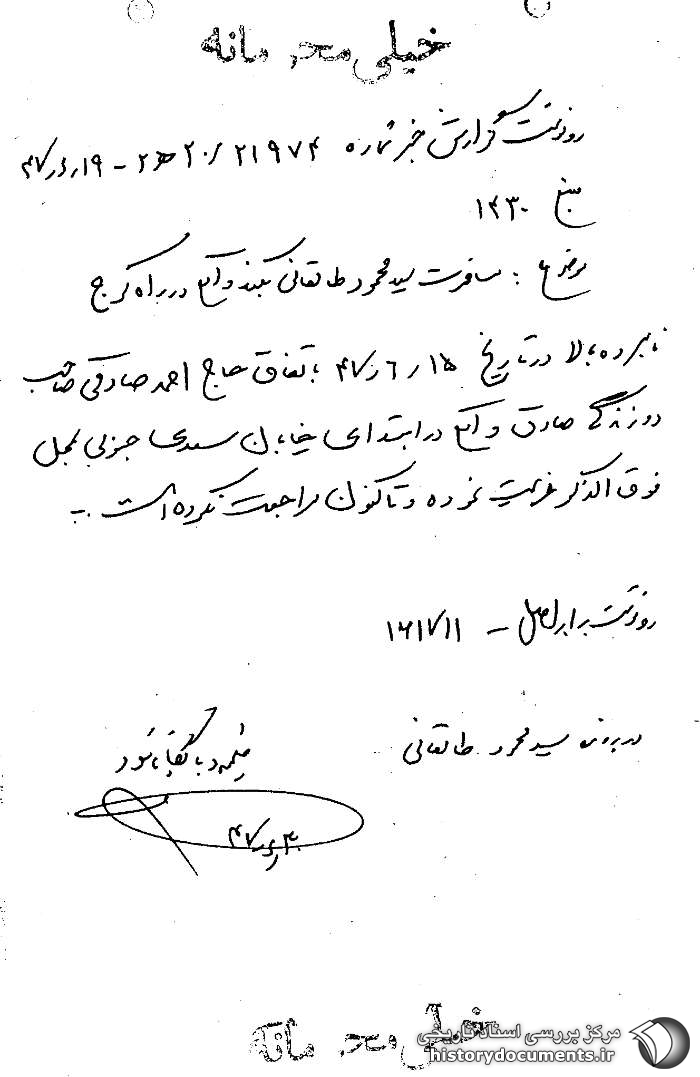 خیلی محرمانه
رونوشت گزارش خبر شماره ۲۱۹۷۴ / ۲۰ ه ۲ - ۱۹ر۶ر۴۷
منبع ۱۴۳۰
موضوع : مسافرت سید محمود طالقانی بکیند واقع در راه کرج
نامبرده بالا در تاریخ ۱۵ر۶ر۴۷ باتفاق حاج احمد صادقی صاحب
دوزندگی صادق واقع در ابتدای خیابان سعدی جنوبی بمحل
فوق الذکر عزیمت نموده و تاکنون مراجعت نکرده است .-
رونوشت برابر اصل - ۱۶۱۷۱۱
در پرونده سید محمود طالقانی
ضمیمه و بایگانی شود
۳۰ر۶ر۴۷
خیلی محرمانه
مرکز بررسی اسناد تاریخی
historydocuments.ir